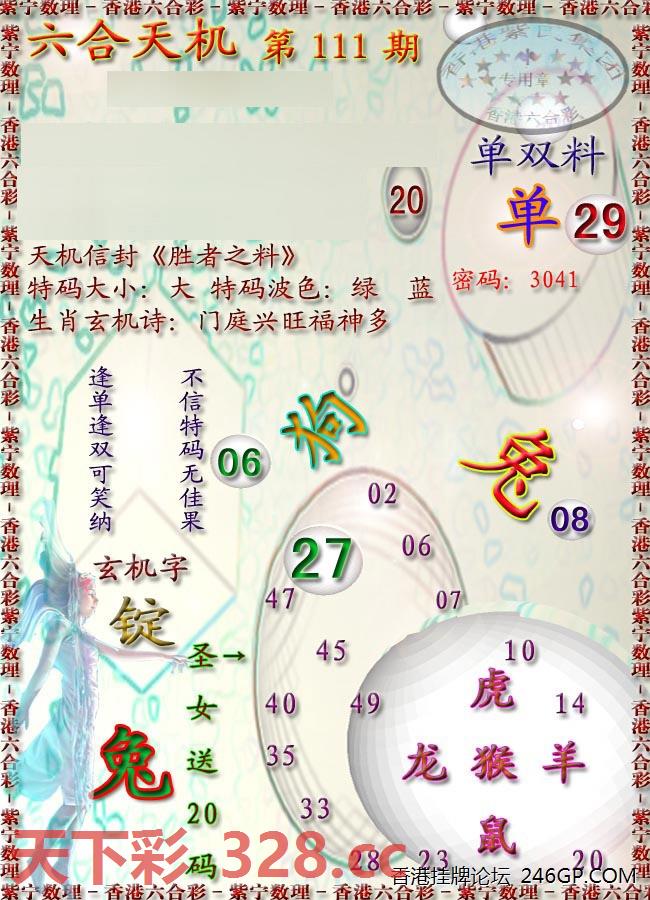 紫宁数理－香港六合彩－紫宁数理－香港六合彩－紫宁数理－香港六合彩－紫宁数理
六合天机 第 111 期
香港紫 集团
专用章
香港六合彩
单双料
单 29
20
天机信封《胜者之料》
特码大小：大 特码波色：绿 蓝
密码：3041
生肖玄机诗：门庭兴旺福神多
不信特码无佳果
逢单逢双可笑纳
06
狗
兔
08
02
27
06
47
07
玄机字
锭
圣女送20码
→
45
10
虎
40
49
14
兔
35
龙 猴 羊
33
鼠
28
23
20
天下彩.328.cc
香港挂牌论坛 246GP.COM
紫宁数理－香港六合彩－紫宁数理－香港六合彩－紫宁数理－香港六合彩－紫宁数理